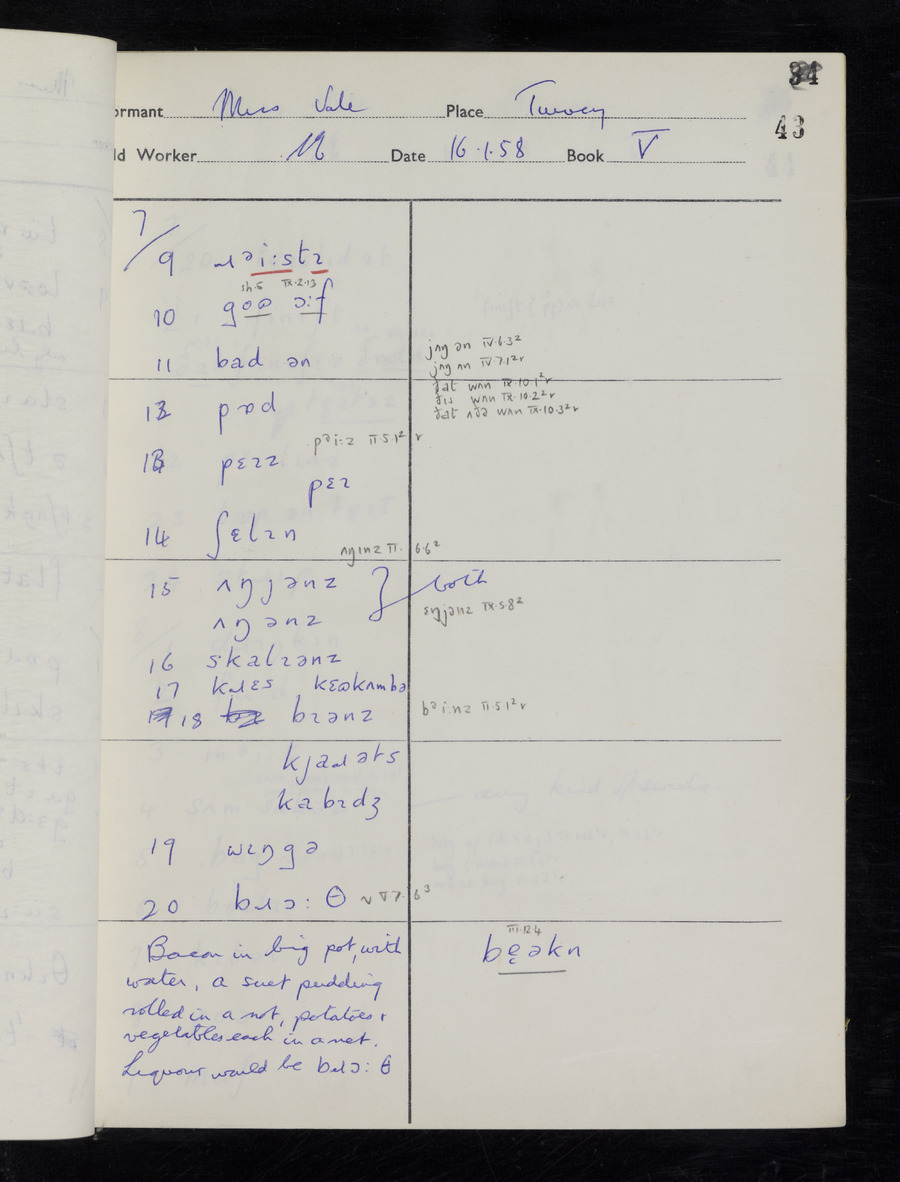 34
43
ormant Miss Vale Place Turvey
ld Worker Date 16.1.58 Book V
7/
9 ɹəi:stɪ
sh.5 IX.2.13
10 gɔɷ ɔ:f
11 bad ən
jʌŋ ən IV.6.3²
jʌŋ ʌn IV.7.1²r
ðat wʌn IX.10.1²r
ðɪs wʌn IX.10.2²r
ðat ʌðə wʌn IX.10.3²r
12 pɒd
pəi:z II.5.1² r
13 pɛɪz
pɛɪ
14 ʃɛlɪn
ʌŋɪnz II. 6.6²
15 ʌŋjənz } both
ʌŋənz
ɛŋjənz IX.5.8²
16 skalɪənz
17 kɹɛs kɛɷkʌmbə
18 bɪənz
bəi:nz II.5.1²r
kjaɹəts
kabɪdʒ
19 wɪŋgə
20 bɹɔ:θ ~ V.7.6³
Bacon in big pot, with
water, a suet pudding
rolled in a not, potatoes +
vegetables each in a net.
Liquour would be bɹɔ:θ
III.12.4
bɛ̣əkn